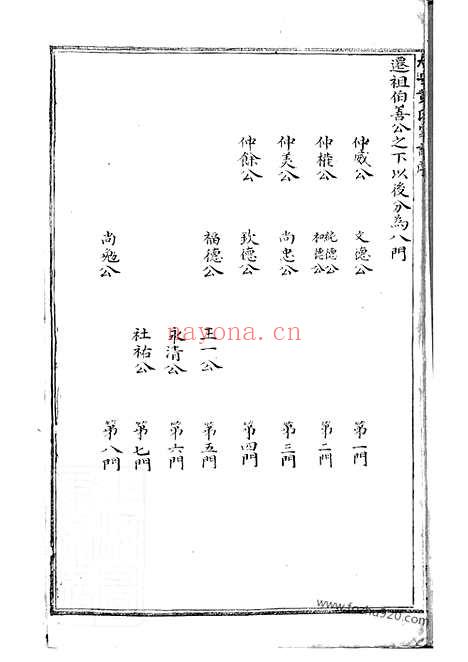 遷祖伯善公之下以後分為八門
仲威公 文德公 第一門
仲權公 純德公 和德公 第二門
仲美公 尚忠公 第三門
仲餘公 致德公 第四門
福德公 正一公 第五門
永清公 第六門
社祐公 第七門
尚勉公 第八門
nayona.cn
www.fozhu920.com